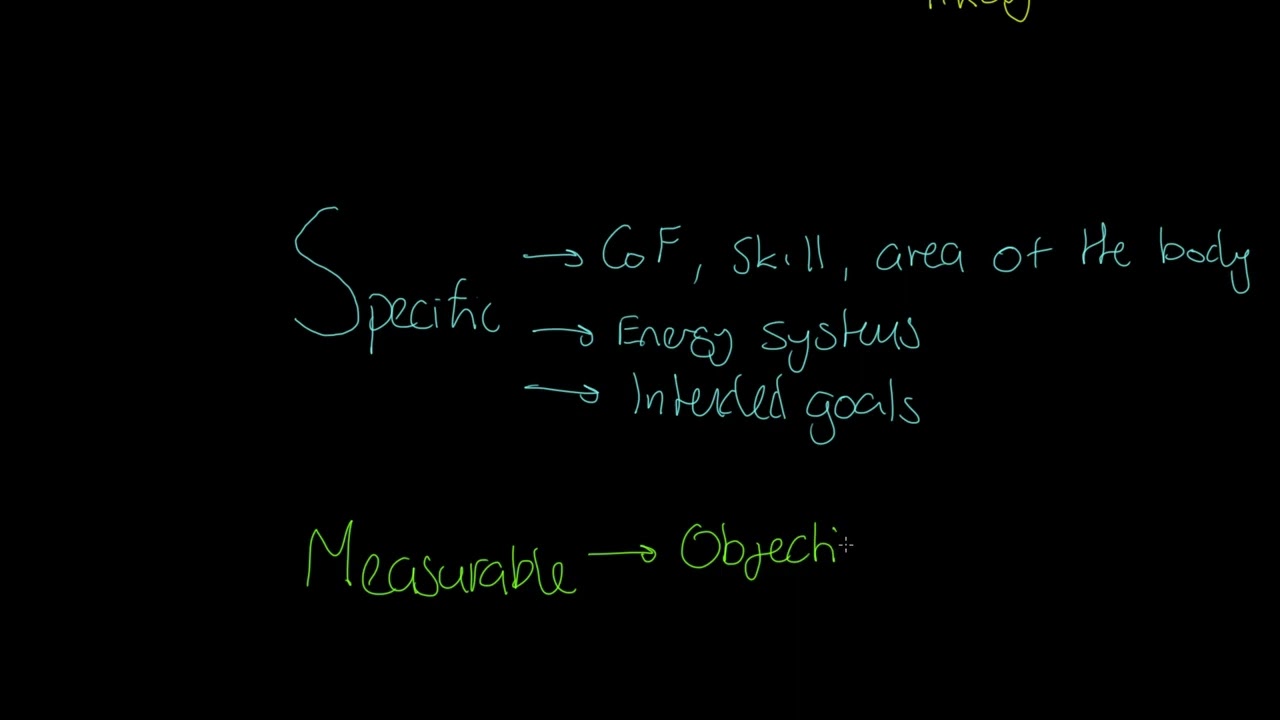 Specific
→ CoF, skill, area of the body
→ Energy systems
→ Intended goals
Measurable → Objecti